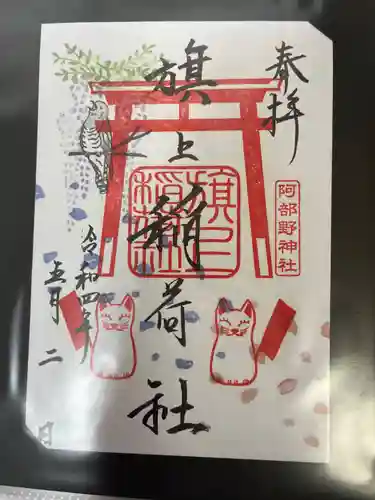 奉拝
旗上稲荷社
旗上稲荷社
阿部野神社
令和四年
五月二日